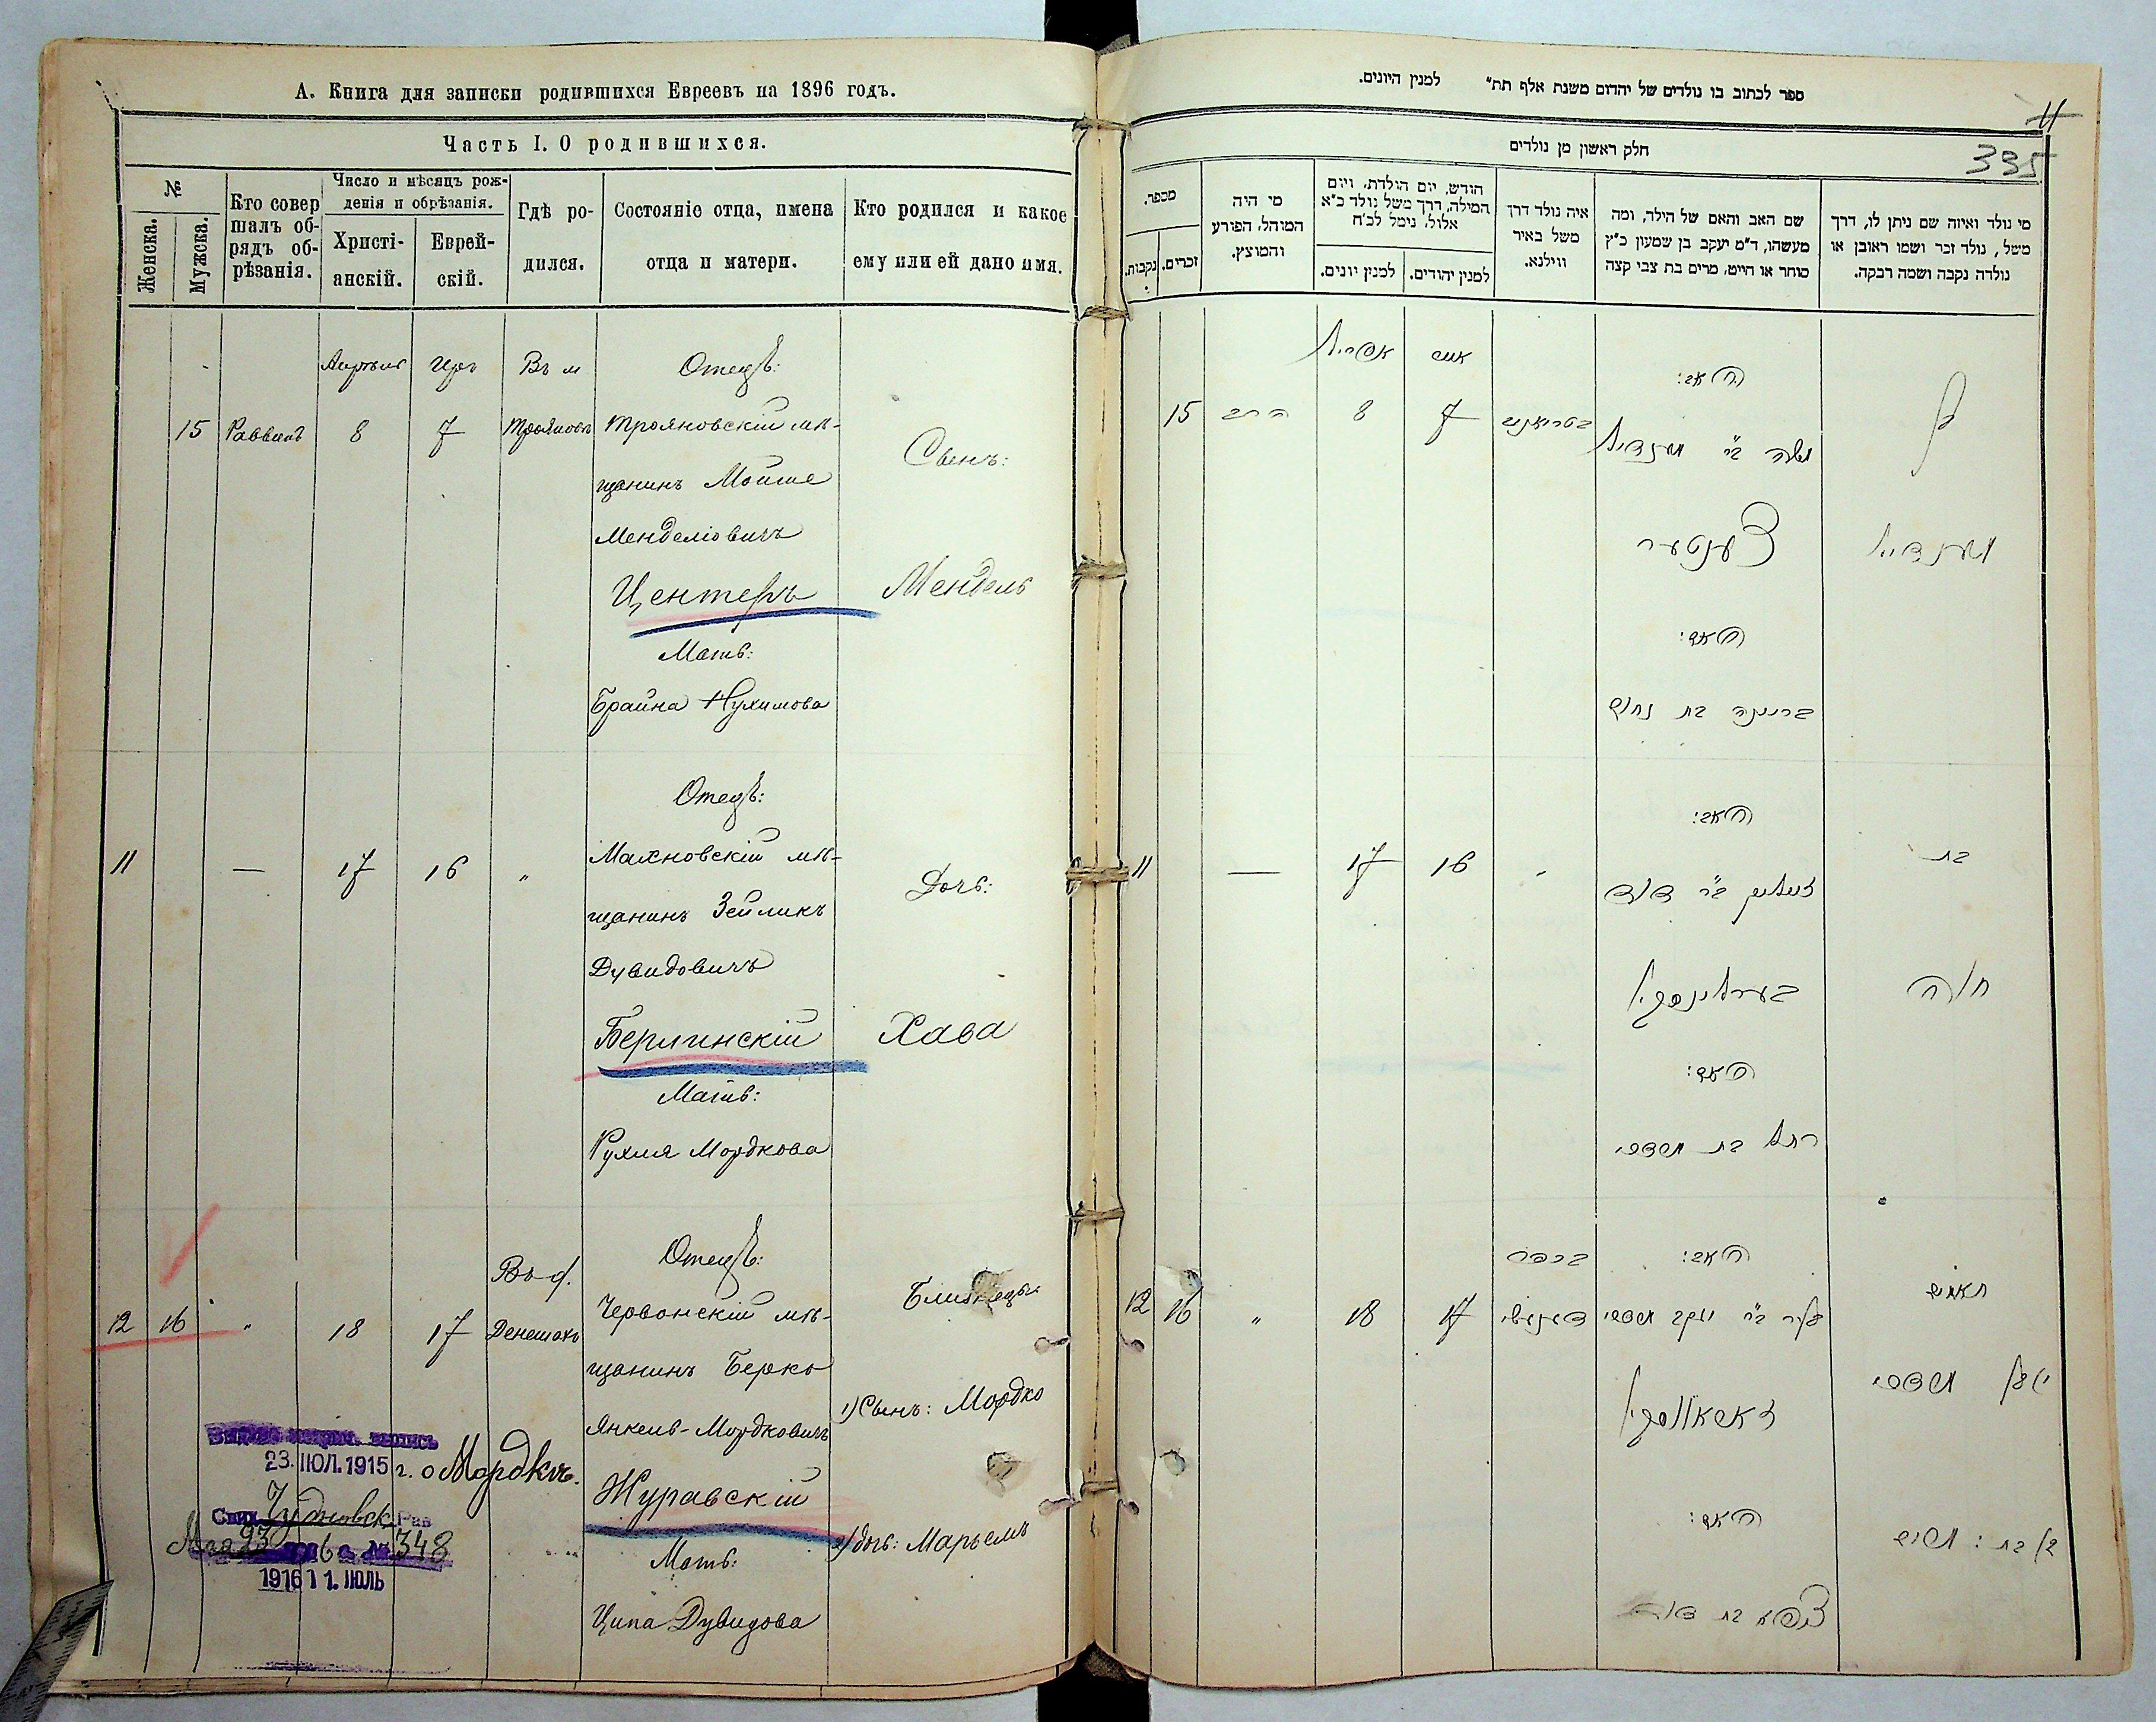 А. Книга для записки родившихся Евреевъ на 1896 годъ.
Часть I. О родившихся.
№
Женска.
Мужска.
Кто совер
шалъ об-
рядъ об-
рѣзанія.
Число и мѣсяцъ рож-
денія и обрѣзанія.
Христі-
анскій.
Еврей-
скій.
Гдѣ ро-
дился.
Состояніе отца, имена
отца и матери.
Кто родился и какое
ему или ей дано имя.
15
Раввинъ
Апрѣль
8
Іяръ
7
Въ м
Трояновѣ
Отецъ:
Трояновскій мѣ-
щанинъ Мойше
Менделіовичъ
Центеръ
Мать:
Брайна Нухимова
Сынъ:
Мендель
11
—
17
16
"
Отецъ:
Махновскій мѣ-
щанинъ Зейликъ
Дувидовичъ
Берлинскій
Мать:
Рухля Мордкова
Дочь:
Хава
12
16
"
18
17
Въ д.
Денешахъ
Отецъ:
Червонскій мѣ-
щанинъ Берко
Янкель-Мордковичъ
Журавскій
Мать:
Ципа Дувидова
Близнецы:
1) Сынъ: Мордко
2) дочь: Марьемъ
23. ІЮЛ. 1915 г. о Мордкѣ.
Чудновск. Рав
348
1916 11. ІЮЛЬ
ספר לכתוב בו נולדים של יהדום משנת אלף תת״ למנין היונים.
11
335
חלק ראשון מן נולדים
מספר.
נקבות.
זכרים.
מי היה
המוהל, הפורע
והמוצץ.
חודש, יום הולדת, ויום
המילה, דרך משל נולד כ״א
אלול, נימל לכ״ח
למנין יונים.
למנין יהודים.
איה נולד דרך
משל באיר
ווילנא.
שם האב והאם של הילד, ומה
מעשהו, ד״מ יעקב בן שמעון כ״ץ
סוחר או חייט, מרים בת צבי קצה
מי נולד ואיזה שם ניתן לו, דרך
משל, נולד זכר ושמו ראובן או
נולדה נקבה ושמה רבקה.
15
הרב
אפריל
8
7
האב:
משה ב״ר מענדיל
צענטער
האם:
בריינה בת נחום
בן
מענדיל
11
—
17
16
האב:
זעליג ב״ר דוד
בערלינסקי
האם:
רחל בת מרדכי
בת
חוה
12
16
"
18
17
בכפר
האב:
בער ב״ר יעקב מרדכי
האם:
ציפא בת דוד
תאומים
מרדכי
2) בת: מרים